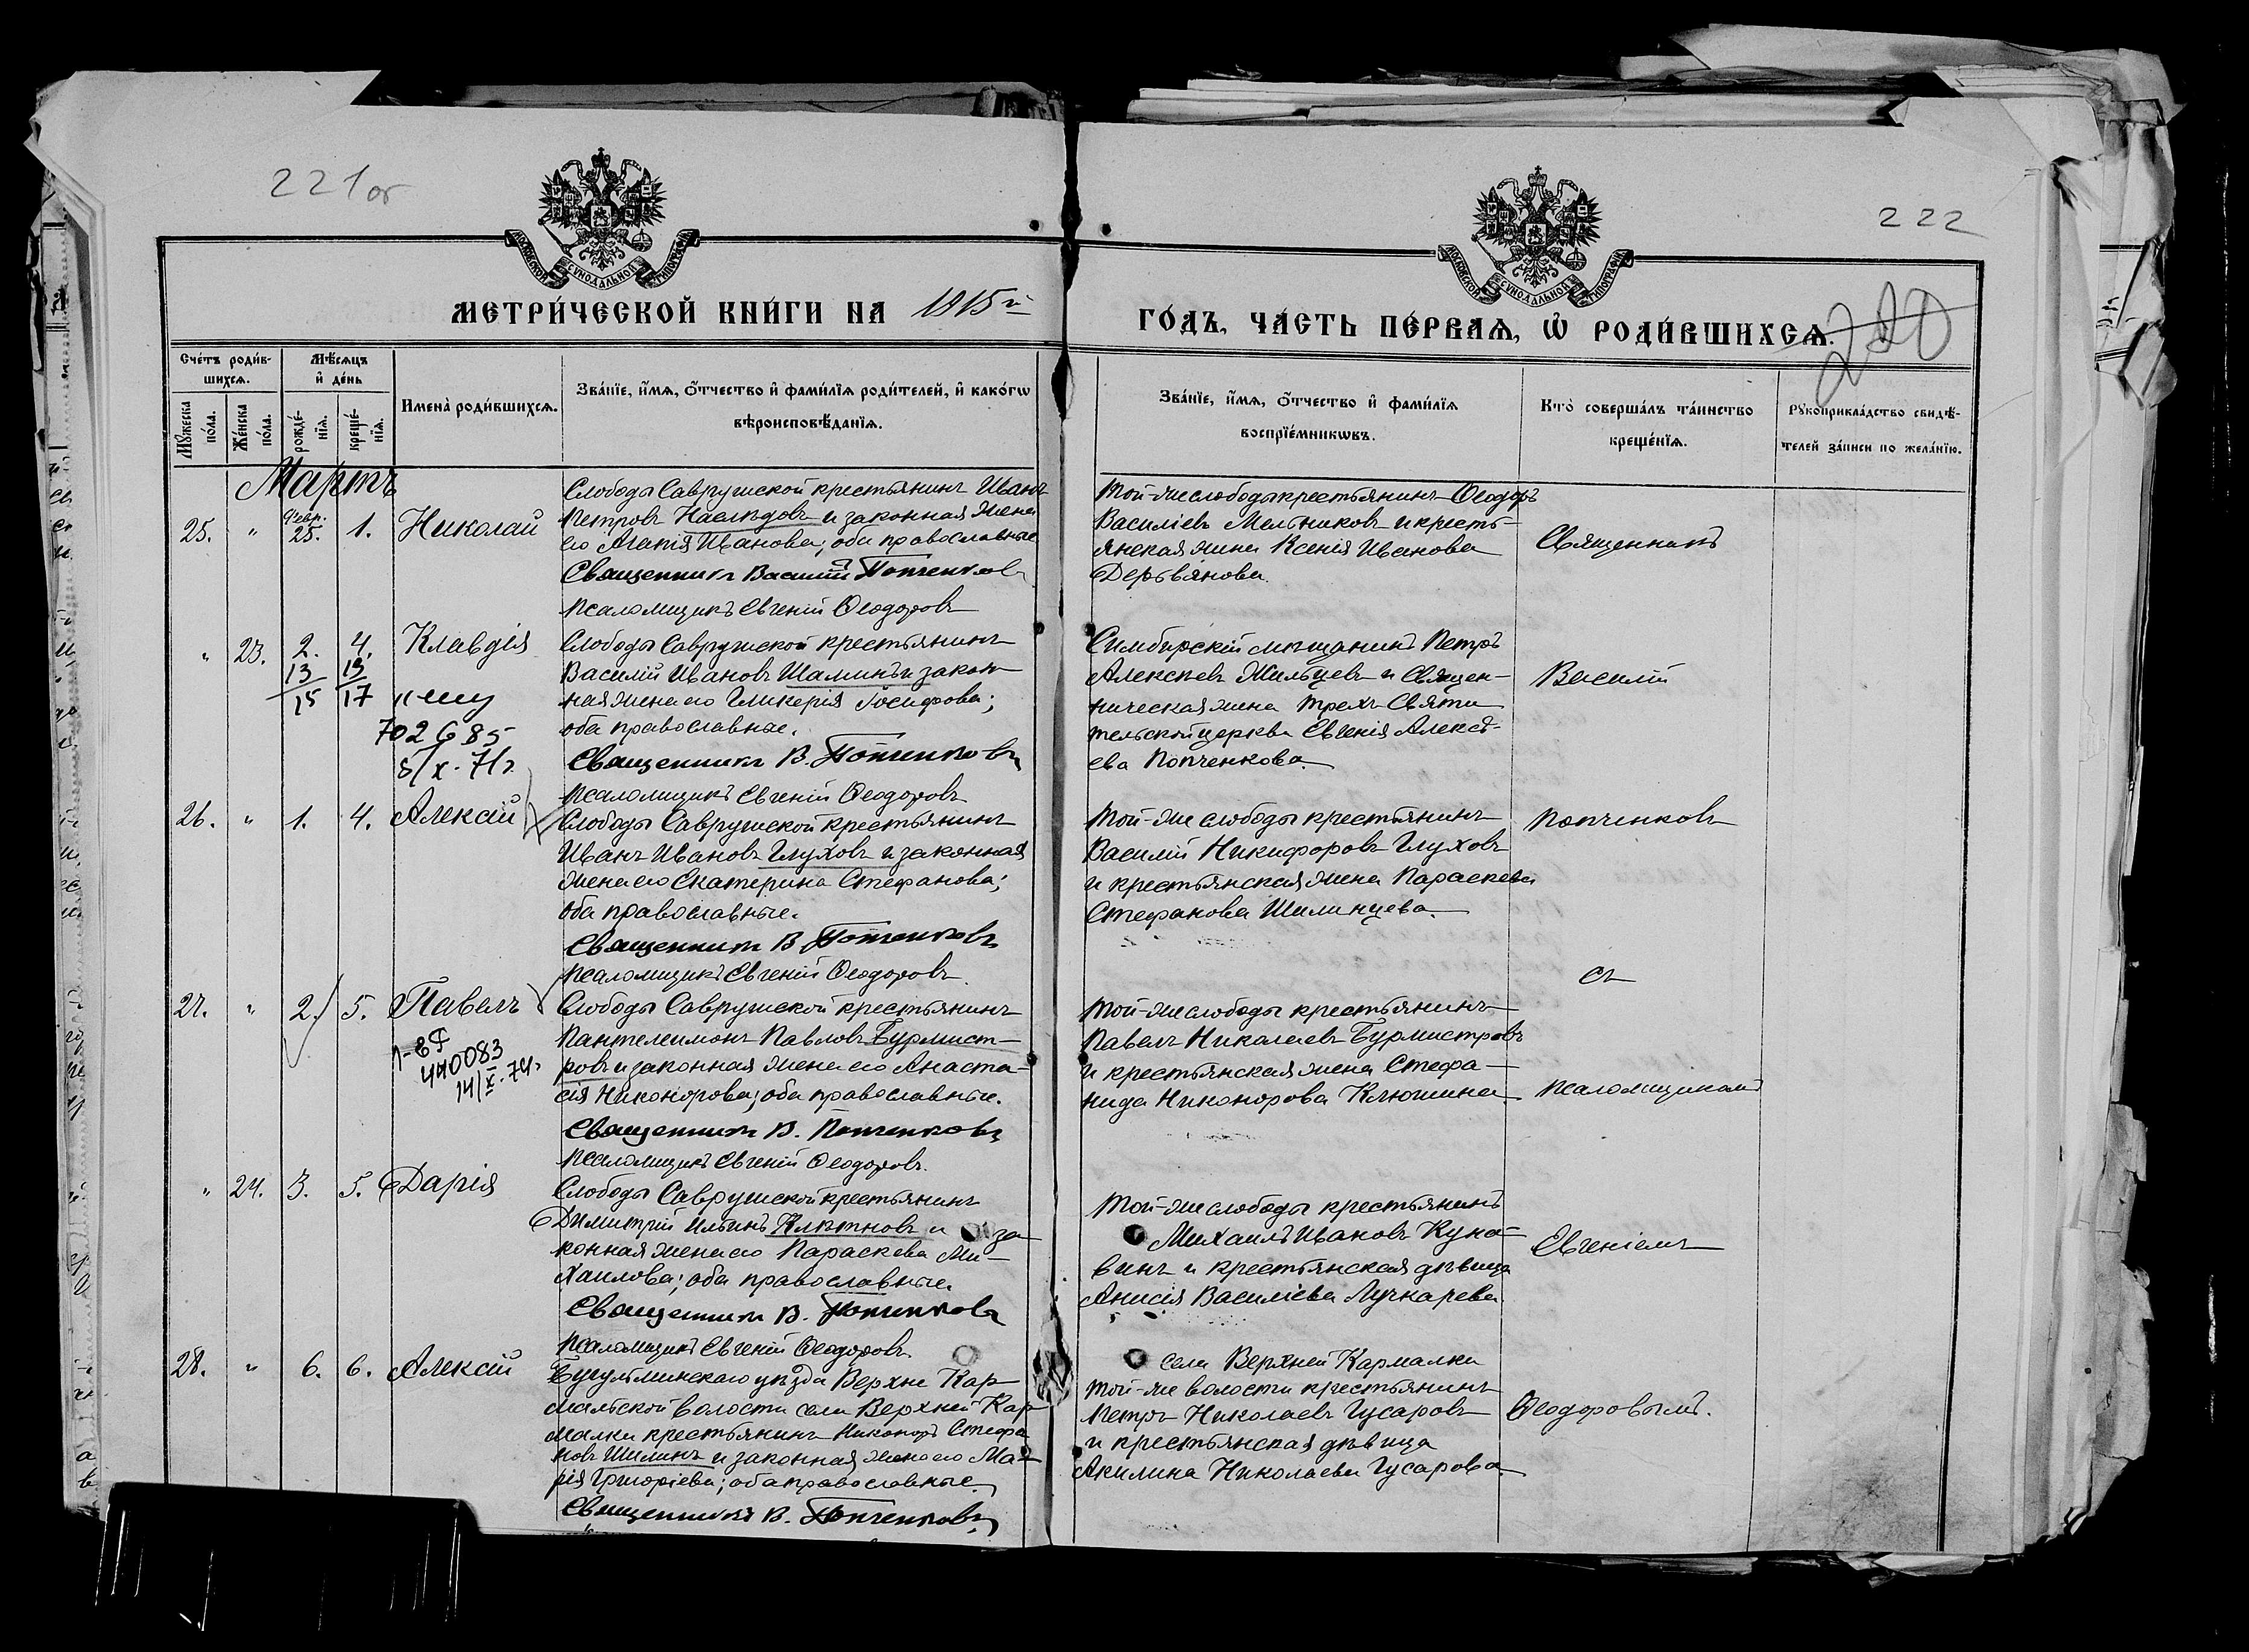 221об
222
220
МОСКОВСКОЙ СѴНОДАЛЬНОЙ ТИПОГРАФІИ
МОСКОВСКОЙ СѴНОДАЛЬНОЙ ТИПОГРАФІИ
МЕТРИ́ЧЕСКОЙ КНИ́ГИ НА 1915й
ГО́ДЪ, ЧА́СТЬ ПЕ́РВАѦ, Ѡ҆ РОДИ́ВШИХСѦ.
Сче́тъ роди́в-
шихсѧ.
Мѣ́сѧцъ
и҆ де́нь
Мꙋ́жеска
по́ла.
Же́нска
по́ла.
рожде́-
нїѧ.
креще́-
нїѧ.
Имена̀ роди́вшихсѧ.
Зва́нїе, и҆́мѧ, ѻ҆́тчество и҆ фами́лїѧ роди́телей, и҆ како́гѡ
вѣроисповѣ́данїѧ.
Зва́нїе, и҆́мѧ, ѻ҆́тчество и҆ фами́лїѧ
воспрїе́мникѡвъ.
Кто̀ соверша́лъ та́инство
креще́нїѧ.
Рꙋкоприкла́дство свидѣ́-
телей за́писи по жела́нїю.
Мартъ
25. " Февр. 25. 1. Николай
Слободы Саврушской крестьянинъ Иванъ
Петровъ Наслѣдовъ и законная жена
его Агапія Иванова; оба православные
Священникъ Василій Попченковъ
Псаломщикъ Евгеній Ѳеодоровъ
Той-же слободы крестьянинъ Ѳеодоръ
Василіевъ Мельниковъ и кресть-
янская жена Ксенія Иванова
Дерьвянова.
Священникъ
" 23. 2. 4. Клавдія
13 13
15 17
702685
8/X-71г.
Слободы Саврушской крестьянинъ
Василій Ивановъ Шаминъ и закон-
ная жена его Гликерія Іосифова;
оба православные.
Священникъ В. Попченковъ
Псаломщикъ Евгеній Ѳеодоровъ
Симбирскій мѣщанинъ Петръ
Алексѣевъ Жильцевъ и Священ-
ническая жена Трехъ-Святи-
тельской церкви Евгенія Алексѣ-
ева Попченкова.
Василій
26. " 1. 4. Алексій
Слободы Саврушской крестьянинъ
Иванъ Ивановъ Глуховъ и законная
жена его Екатерина Стефанова;
оба православные.
Священникъ В. Попченковъ
Псаломщикъ Евгеній Ѳеодоровъ.
Той-же слободы крестьянинъ
Василій Никифоровъ Глуховъ
и крестьянская жена Параскева
Стефанова Шилинцева.
Попченковъ
съ
27. " 2. 5. Павелъ
440083
14/X-74г.
Слободы Саврушской крестьянинъ
Пантелеимонъ Павловъ Бурмист-
ровъ и законная жена его Анаста-
сія Никонорова; оба православные.
Священникъ В. Попченковъ
Псаломщикъ Евгеній Ѳеодоровъ.
Той-же слободы крестьянинъ
Павелъ Николаевъ Бурмистровъ
и крестьянская жена Стефа-
нида Никонорова Клюшина
псаломщикомъ
" 24. 3. 5. Дарія
Слободы Саврушской крестьянинъ
Димитрій Ильинъ Клѣтновъ и за-
конная жена его Параскева Ми-
хаилова; оба православные.
Священникъ В. Попченковъ
Псаломщикъ Евгеній Ѳеодоровъ.
Той-же слободы крестьянинъ
Михаилъ Ивановъ Куна-
винъ и крестьянская дѣвица
Анисія Василіева Лучкарева
Евгеніемъ
28. " 6. 6. Алексій
Бугульминскаго уѣзда Верхне Кар-
мальской волости села Верхней Кар-
малки крестьянинъ Никоноръ Стефа-
новъ Шилинъ и законная жена его Ма-
рія Григоріева; оба православные.
Священникъ В. Попченковъ
села Верхней Кармалки
той-же волости крестьянинъ
Петръ Николаевъ Гусаровъ
и крестьянская дѣвица
Акилина Николаева Гусарова.
Ѳеодоровымъ.